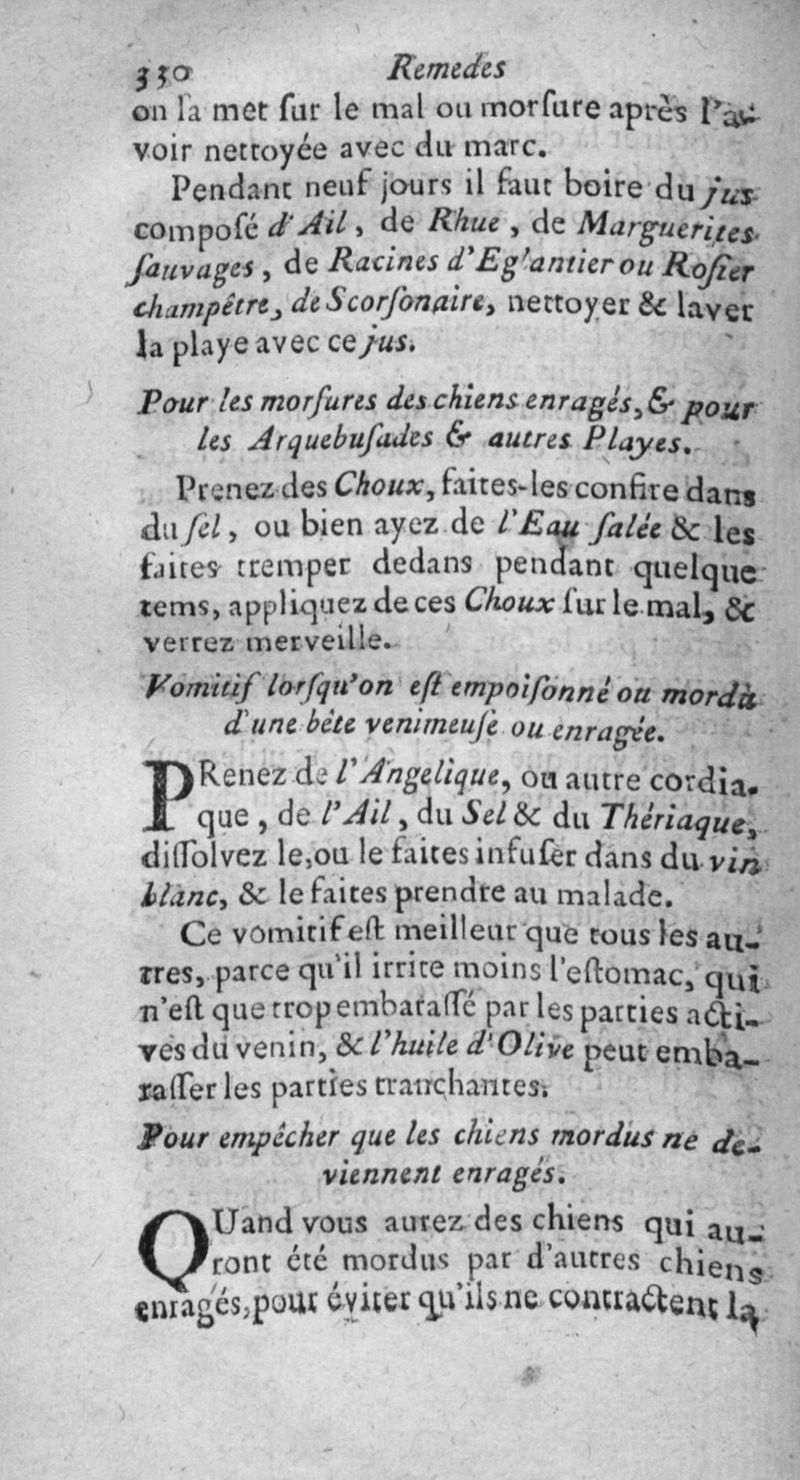 350 Remedes
on la met ſur le mal ou morſure après l'a-
voir nettoyée avec du marc.
Pendant neuf jours il faut boire du jus
compoſé d'Ail, de Rhue, de Marguerites
ſauvages, de Racines d'Eg'antier ou Roſier
champêtre, de Scorſonaire, nettoyer & laver
la playe avec ce jus.
Pour les morſures des chiens enragés, & pour
les Arquebuſades & autres Playes.
Prenez des Choux, faites-les confire dans
du ſel, ou bien ayez de l'Eau ſalée & les
faites tremper dedans pendant quelque
tems, appliquez de ces Choux ſur le mal, &
verrez merveille.
Vomitif lorſqu'on eſt empoiſonné ou mordu
d'une bête venimeuſe ou enragée.
PRenez de l'Angelique, ou autre cordia-
que, de l'Ail, du Sel & du Thériaque,
diſſolvez le, ou le faites infuſer dans du vin
blanc, & le faites prendre au malade.
Ce vomitif eſt meilleur que tous les au-
tres, parce qu'il irrite moins l'eſtomac, qui
n'eſt que trop embaraſſé par les parties acti-
ves du venin, & l'huile d'Olive peut emba-
raſſer les parties tranchantes.
Pour empêcher que les chiens mordus ne de-
viennent enragés.
QUand vous aurez des chiens qui au-
ront été mordus par d'autres chiens
enragés, pour éviter qu'ils ne contractent la